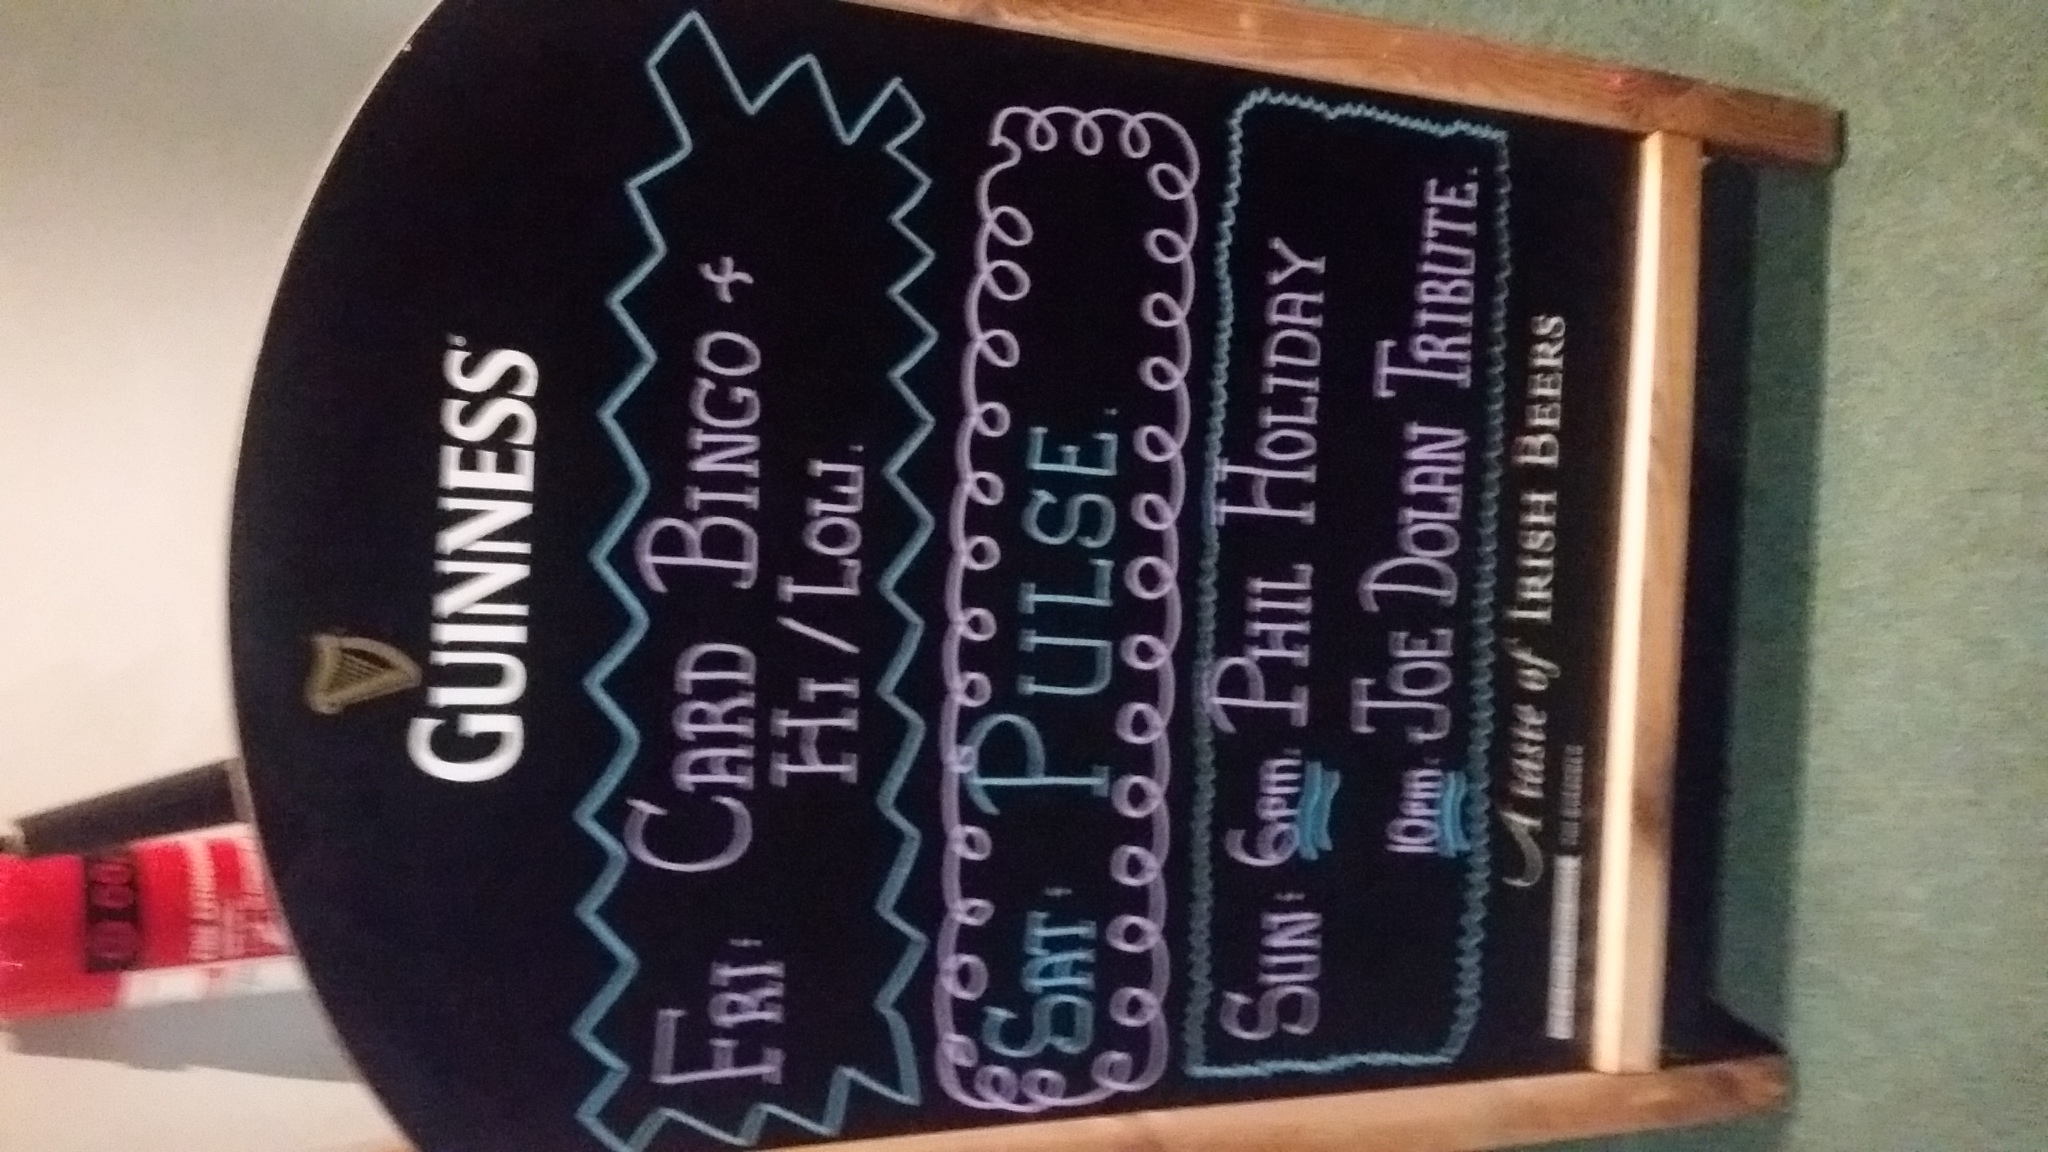 GUINNESS
FRI: CARD BINGO &
HI/LOW.
SAT: PULSE.
SUN: 6pm: PHIL HOLIDAY
10pm: JOE DOLAN TRIBUTE.
A taste of IRISH BEERS